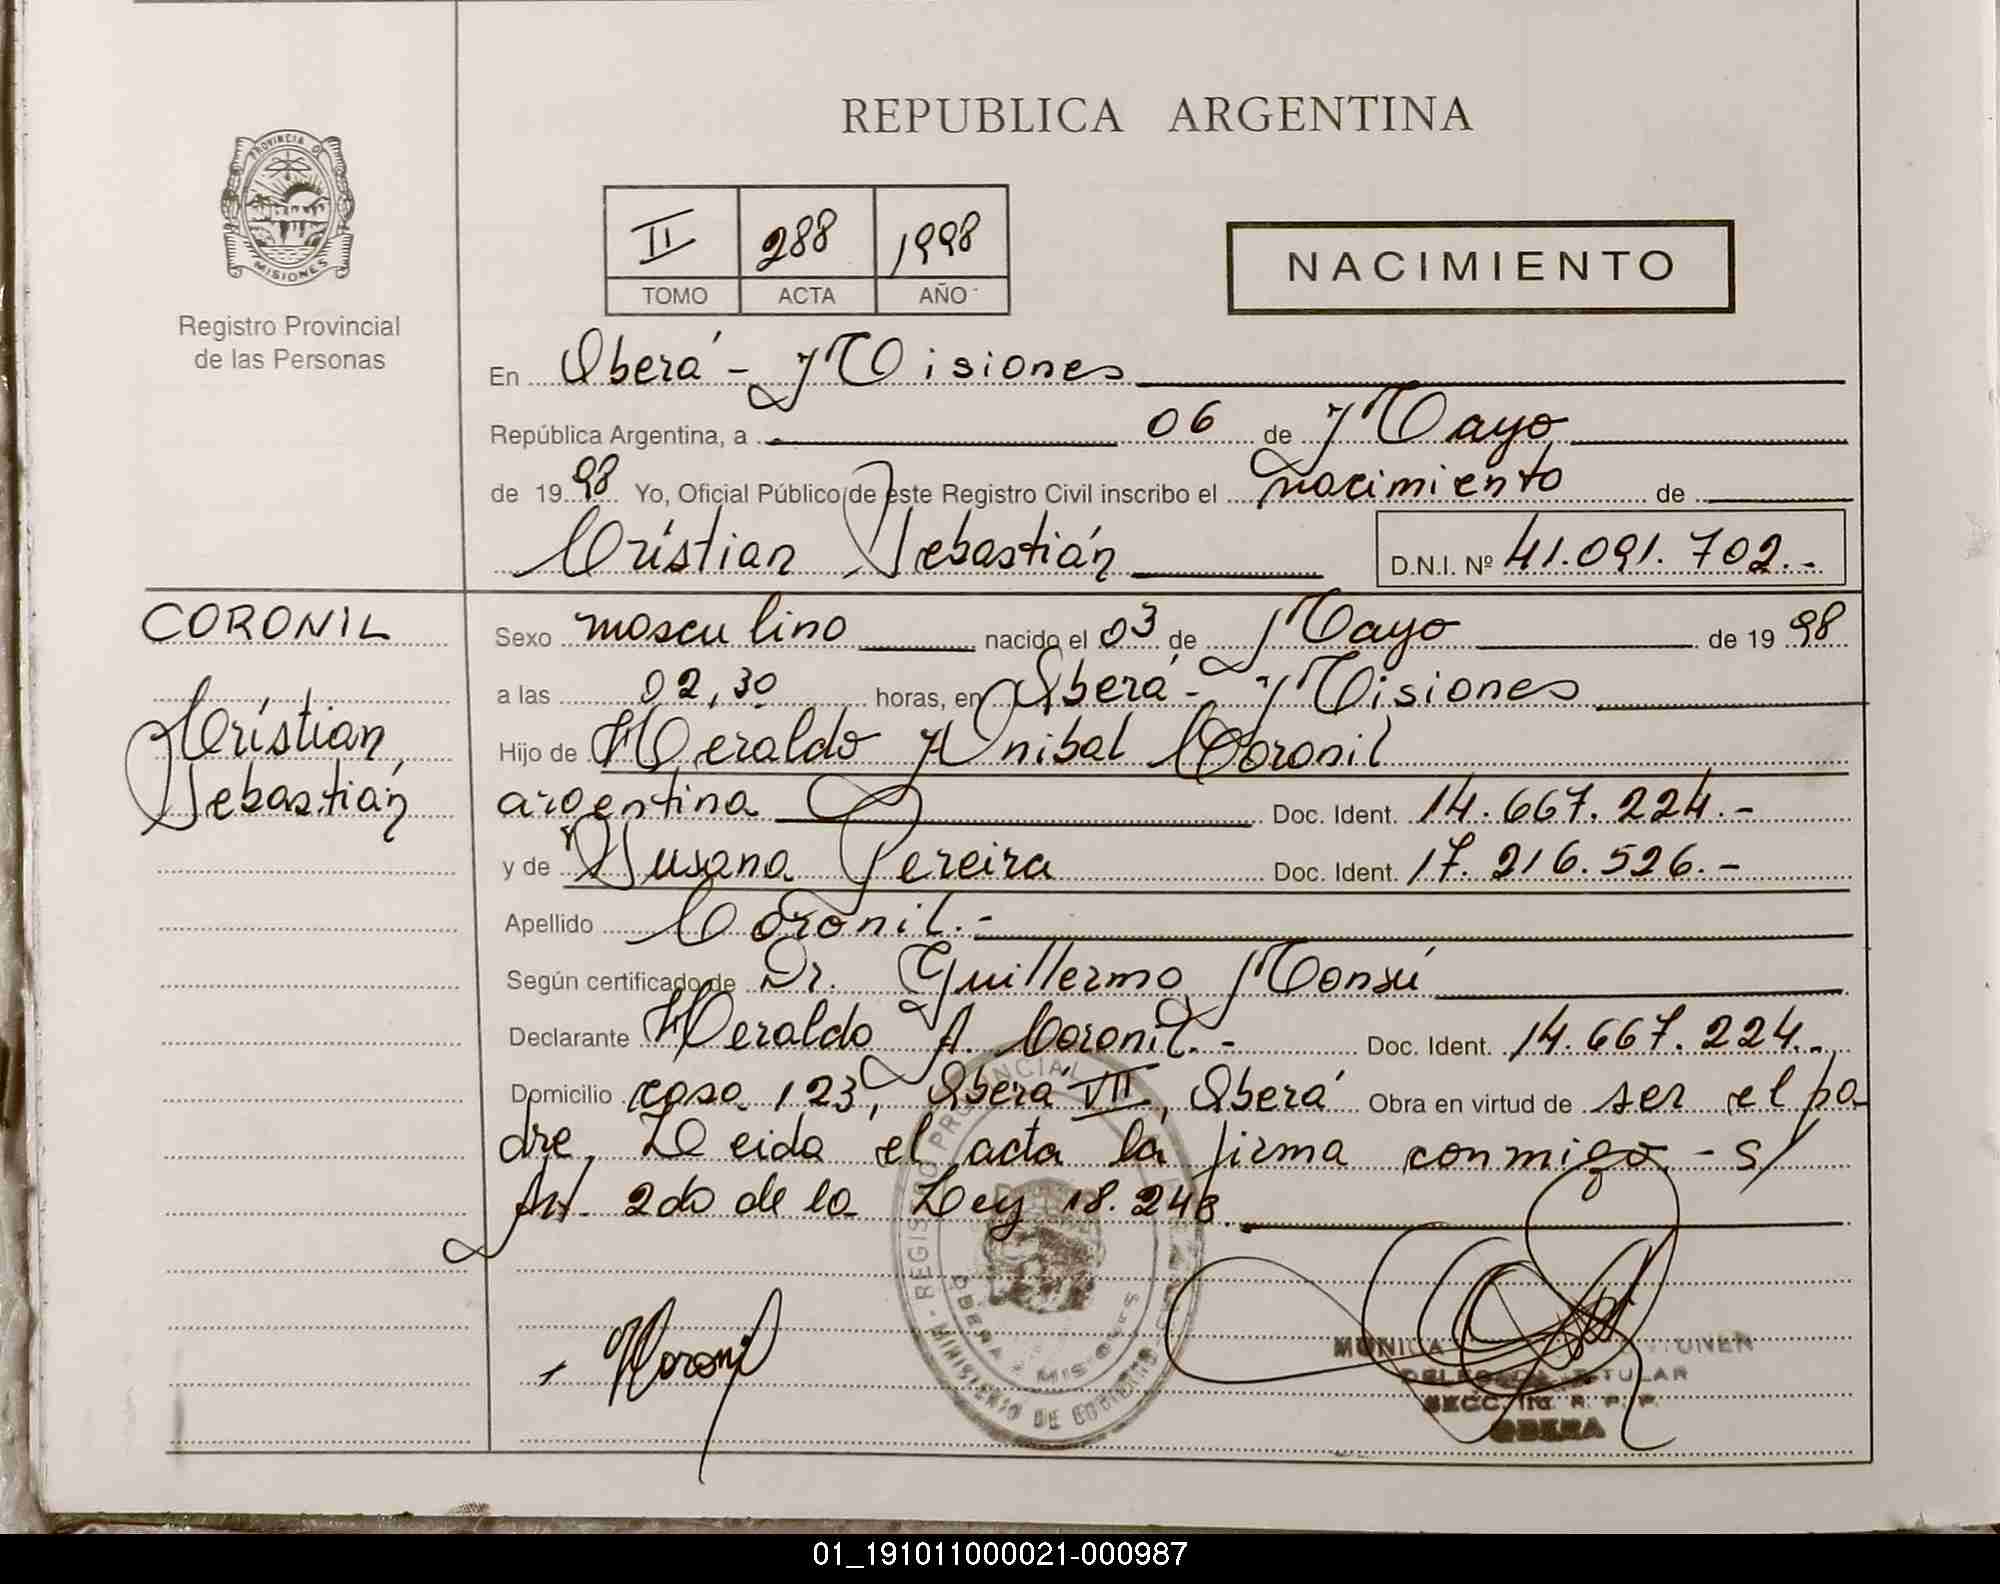 REPUBLICA ARGENTINA
PROVINCIA D
MISIONES
Registro Provincial
de las Personas
II 288 1998
TOMO ACTA AÑO
NACIMIENTO
En Oberá - Misiones
República Argentina, a 06 de Mayo
de 1998 Yo, Oficial Público de este Registro Civil inscribo el nacimiento de
Cristian Sebastián D.N.I. Nº 41.091.702.-
CORONIL
Cristian
Sebastián
Sexo masculino nacido el 03 de Mayo de 1998
a las 02,30 horas, en Oberá - Misiones
Hijo de Heraldo Anibal Coronil
argentina Doc. Ident. 14.667.224.-
y de Susana Pereira Doc. Ident. 17.216.526.-
Apellido Coronil.-
Según certificado de Dr. Guillermo Monsú
Declarante Heraldo A. Coronil.- Doc. Ident. 14.667.224.-
Domicilio casa 123, Oberá VII, Oberá Obra en virtud de ser el pa
dre. Leida el acta la firma conmigo - s/
Art. 2do de la Ley 18.248.
Coronil
MONICA
TITULAR
SECC. R. P. P.
OBERA
OBERA MISIONES
MINISTERIO DE GOBIERNO
01_191011000021-000987